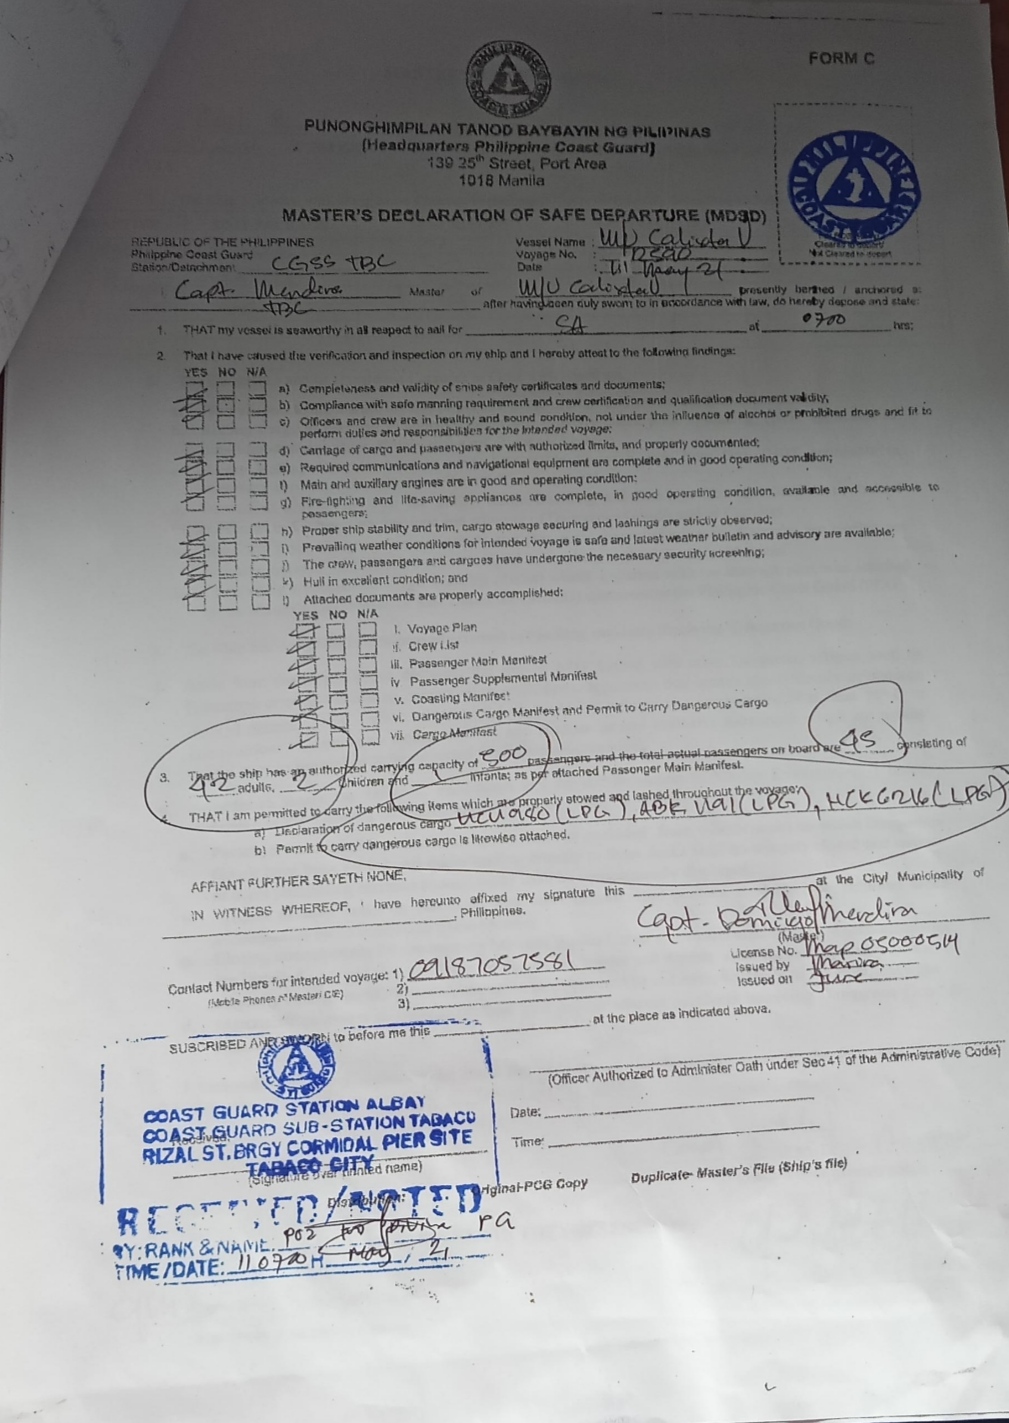 FORM C
PHILIPPINE COAST GUARD
PUNONGHIMPILAN TANOD BAYBAYIN NG PILIPINAS
(Headquarters Philippine Coast Guard)
139 25th Street, Port Area
1018 Manila
PHILIPPINE COAST GUARD
MASTER'S DECLARATION OF SAFE DEPARTURE (MDSD)
REPUBLIC OF THE PHILIPPINES
Philippine Coast Guard
Station/Detachment CGSS TBC
Vessel Name : M/V Calixta V
Voyage No. :
Date : 11 May 21
Capt. Mendira Master of M/V Calixta V presently berthed / anchored a
TBC after having been duly sworn to in accordance with law, do hereby depose and state:
1. THAT my vessel is seaworthy in all respect to sail for SA at 0700 hrs;
2. That I have caused the verification and inspection on my ship and I hereby attest to the following findings:
YES NO N/A
a) Completeness and validity of ships safety certificates and documents;
b) Compliance with safe manning requirement and crew certification and qualification document validity;
c) Officers and crew are in healthy and sound condition, not under the influence of alcohol or prohibited drugs and fit to
perform duties and responsibilities for the intended voyage;
d) Carriage of cargo and passengers are with authorized limits, and properly documented;
e) Required communications and navigational equipment are complete and in good operating condition;
f) Main and auxiliary engines are in good and operating condition;
g) Fire-fighting and life-saving appliances are complete, in good operating condition, available and accessible to
passengers;
h) Proper ship stability and trim, cargo stowage securing and lashings are strictly observed;
i) Prevailing weather conditions for intended voyage is safe and latest weather bulletin and advisory are available;
j) The crew, passengers and cargoes have undergone the necessary security screening;
k) Hull in excellent condition; and
l) Attached documents are properly accomplished:
YES NO N/A
i. Voyage Plan
ii. Crew List
iii. Passenger Main Manifest
iv Passenger Supplemental Manifest
v. Coasting Manifest
vi. Dangerous Cargo Manifest and Permit to Carry Dangerous Cargo
vii. Cargo Manifest
3. That the ship has an authorized carrying capacity of 300 passengers and the total actual passengers on board are 45 consisting of
42 adults, 2 Children and infants; as per attached Passenger Main Manifest.
4. THAT I am permitted to carry the following items which are properly stowed and lashed throughout the voyage:
a) Declaration of dangerous cargo (LPG), (LPG), (LPG)
b) Permit to carry dangerous cargo is likewise attached.
AFFIANT FURTHER SAYETH NONE.
IN WITNESS WHEREOF, I have hereunto affixed my signature this at the City/ Municipality of
, Philippines.
Capt. Domingo Mendira
(Master)
License No. Map 05000514
Issued by Marina
Issued on June
Contact Numbers for intended voyage: 1) 09187057581
(Mobile Phones of Master/ C/E) 2)
3)
SUSCRIBED AND SWORN to before me this at the place as indicated above.
(Officer Authorized to Administer Oath under Sec 41 of the Administrative Code)
Date:
Time:
COAST GUARD STATION ALBAY
COAST GUARD SUB-STATION TABACO
Received:
RIZAL ST. BRGY CORMIDAL PIER SITE
TABACO CITY
(Signature over printed name)
Distribution: Original-PCG Copy Duplicate- Master's File (Ship's file)
RECEIVED/NOTED
BY: RANK & NAME PO2 PG
TIME/DATE: 110700H May 21